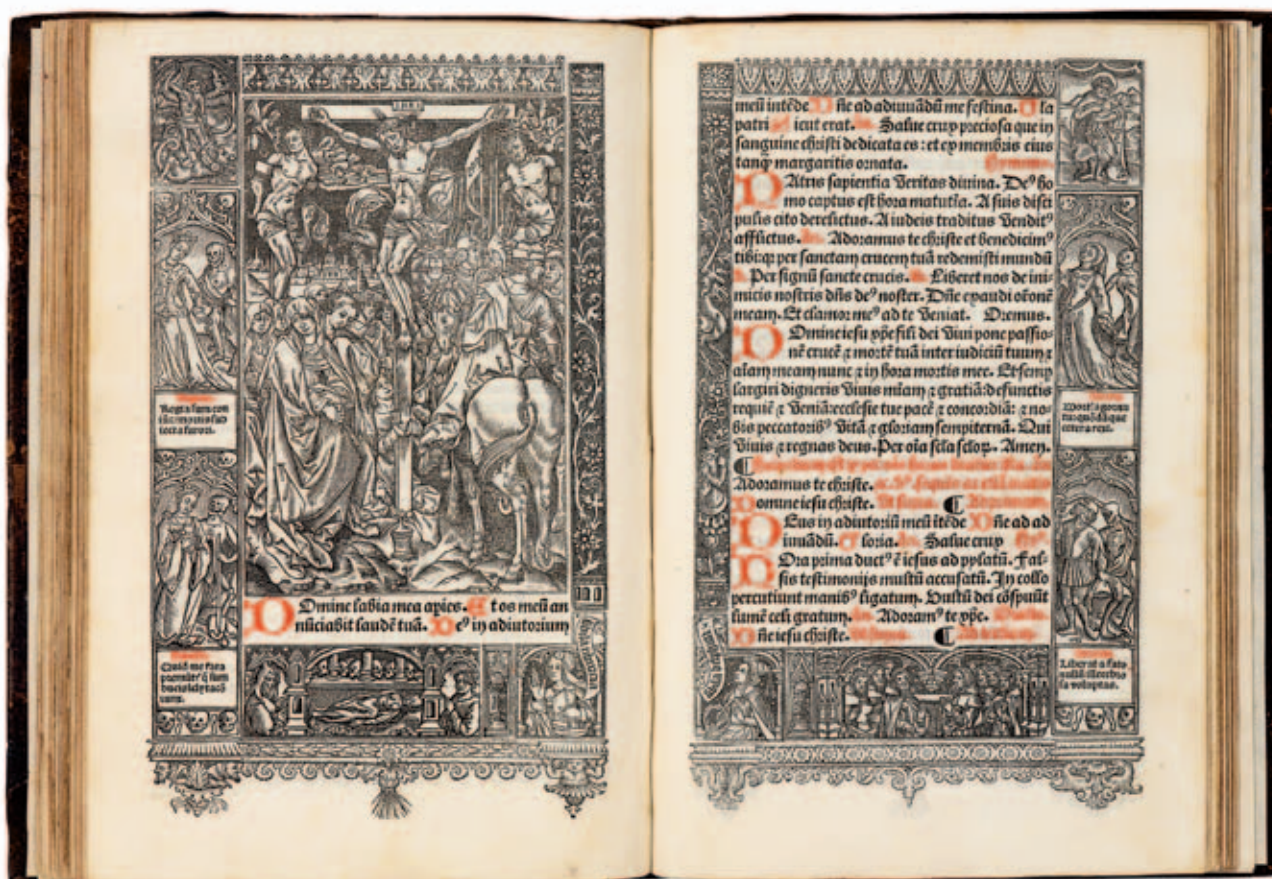 INRI
Domine labia mea apies. Et os meũ an
nũciabit laudẽ tuã. Deꝰ in adiutorium
Regia sum con
meũ intẽde Dñe ad adiuuãdũ me festina. Gla
patri Sicut erat. Salue crux preciosa que in
sanguine christi dedicata es: et ex membris eius
tanqȝ margaritis ornata. Hymnus.
PAtris sapientia Veritas diuina. Deꝰ ho
mo captus est hora matutĩa. A suis disci
pulis cito derelictus. A iudeis traditus Venditꝰ
afflictus. Adoramus te christe et benedicimꝰ
tibi: qꝛ per sanctam crucem tuã redemisti mundũ
Per signũ sancte crucis. Liberet nos de ini
micis nostris dñs deꝰ noster. Dñe exaudi orõnẽ
meam. Et clamor meꝰ ad te Veniat. Oremus.
DOmine iesu xp̃e fili dei Viui pone passio-
nẽ crucẽ ⁊ mortẽ tuã inter iudiciũ tuum ⁊
aĩam meam nunc ⁊ in hora mortis mee. Et
largiri digneris Viuis mĩam ⁊ gratiã: defunctis
requiẽ ⁊ Veniã: ecclesie tue pacẽ ⁊ concordiã: ⁊ no-
bis peccatoribꝰ Vitã ⁊ gloriam sempiternã. Qui
Viuis ⁊ regnas deus. Per oĩa Amen.
Adoramus te christe.
Domine iesu christe.
DEus in adiutoriũ meũ itẽde Dñe ad ad
iuuãdũ. Gloria. Salue crux
HOra prima ductꝰ ẽ iesus ad pylatũ. Fal-
sis testimonijs multũ accusatũ. In collo
percutiunt manibꝰ ligatum. Vultũ dei cõspuũt
lumẽ celi gratum. Adoramꝰ te xp̃e.
Dñe iesu christe.
Liberat a fato